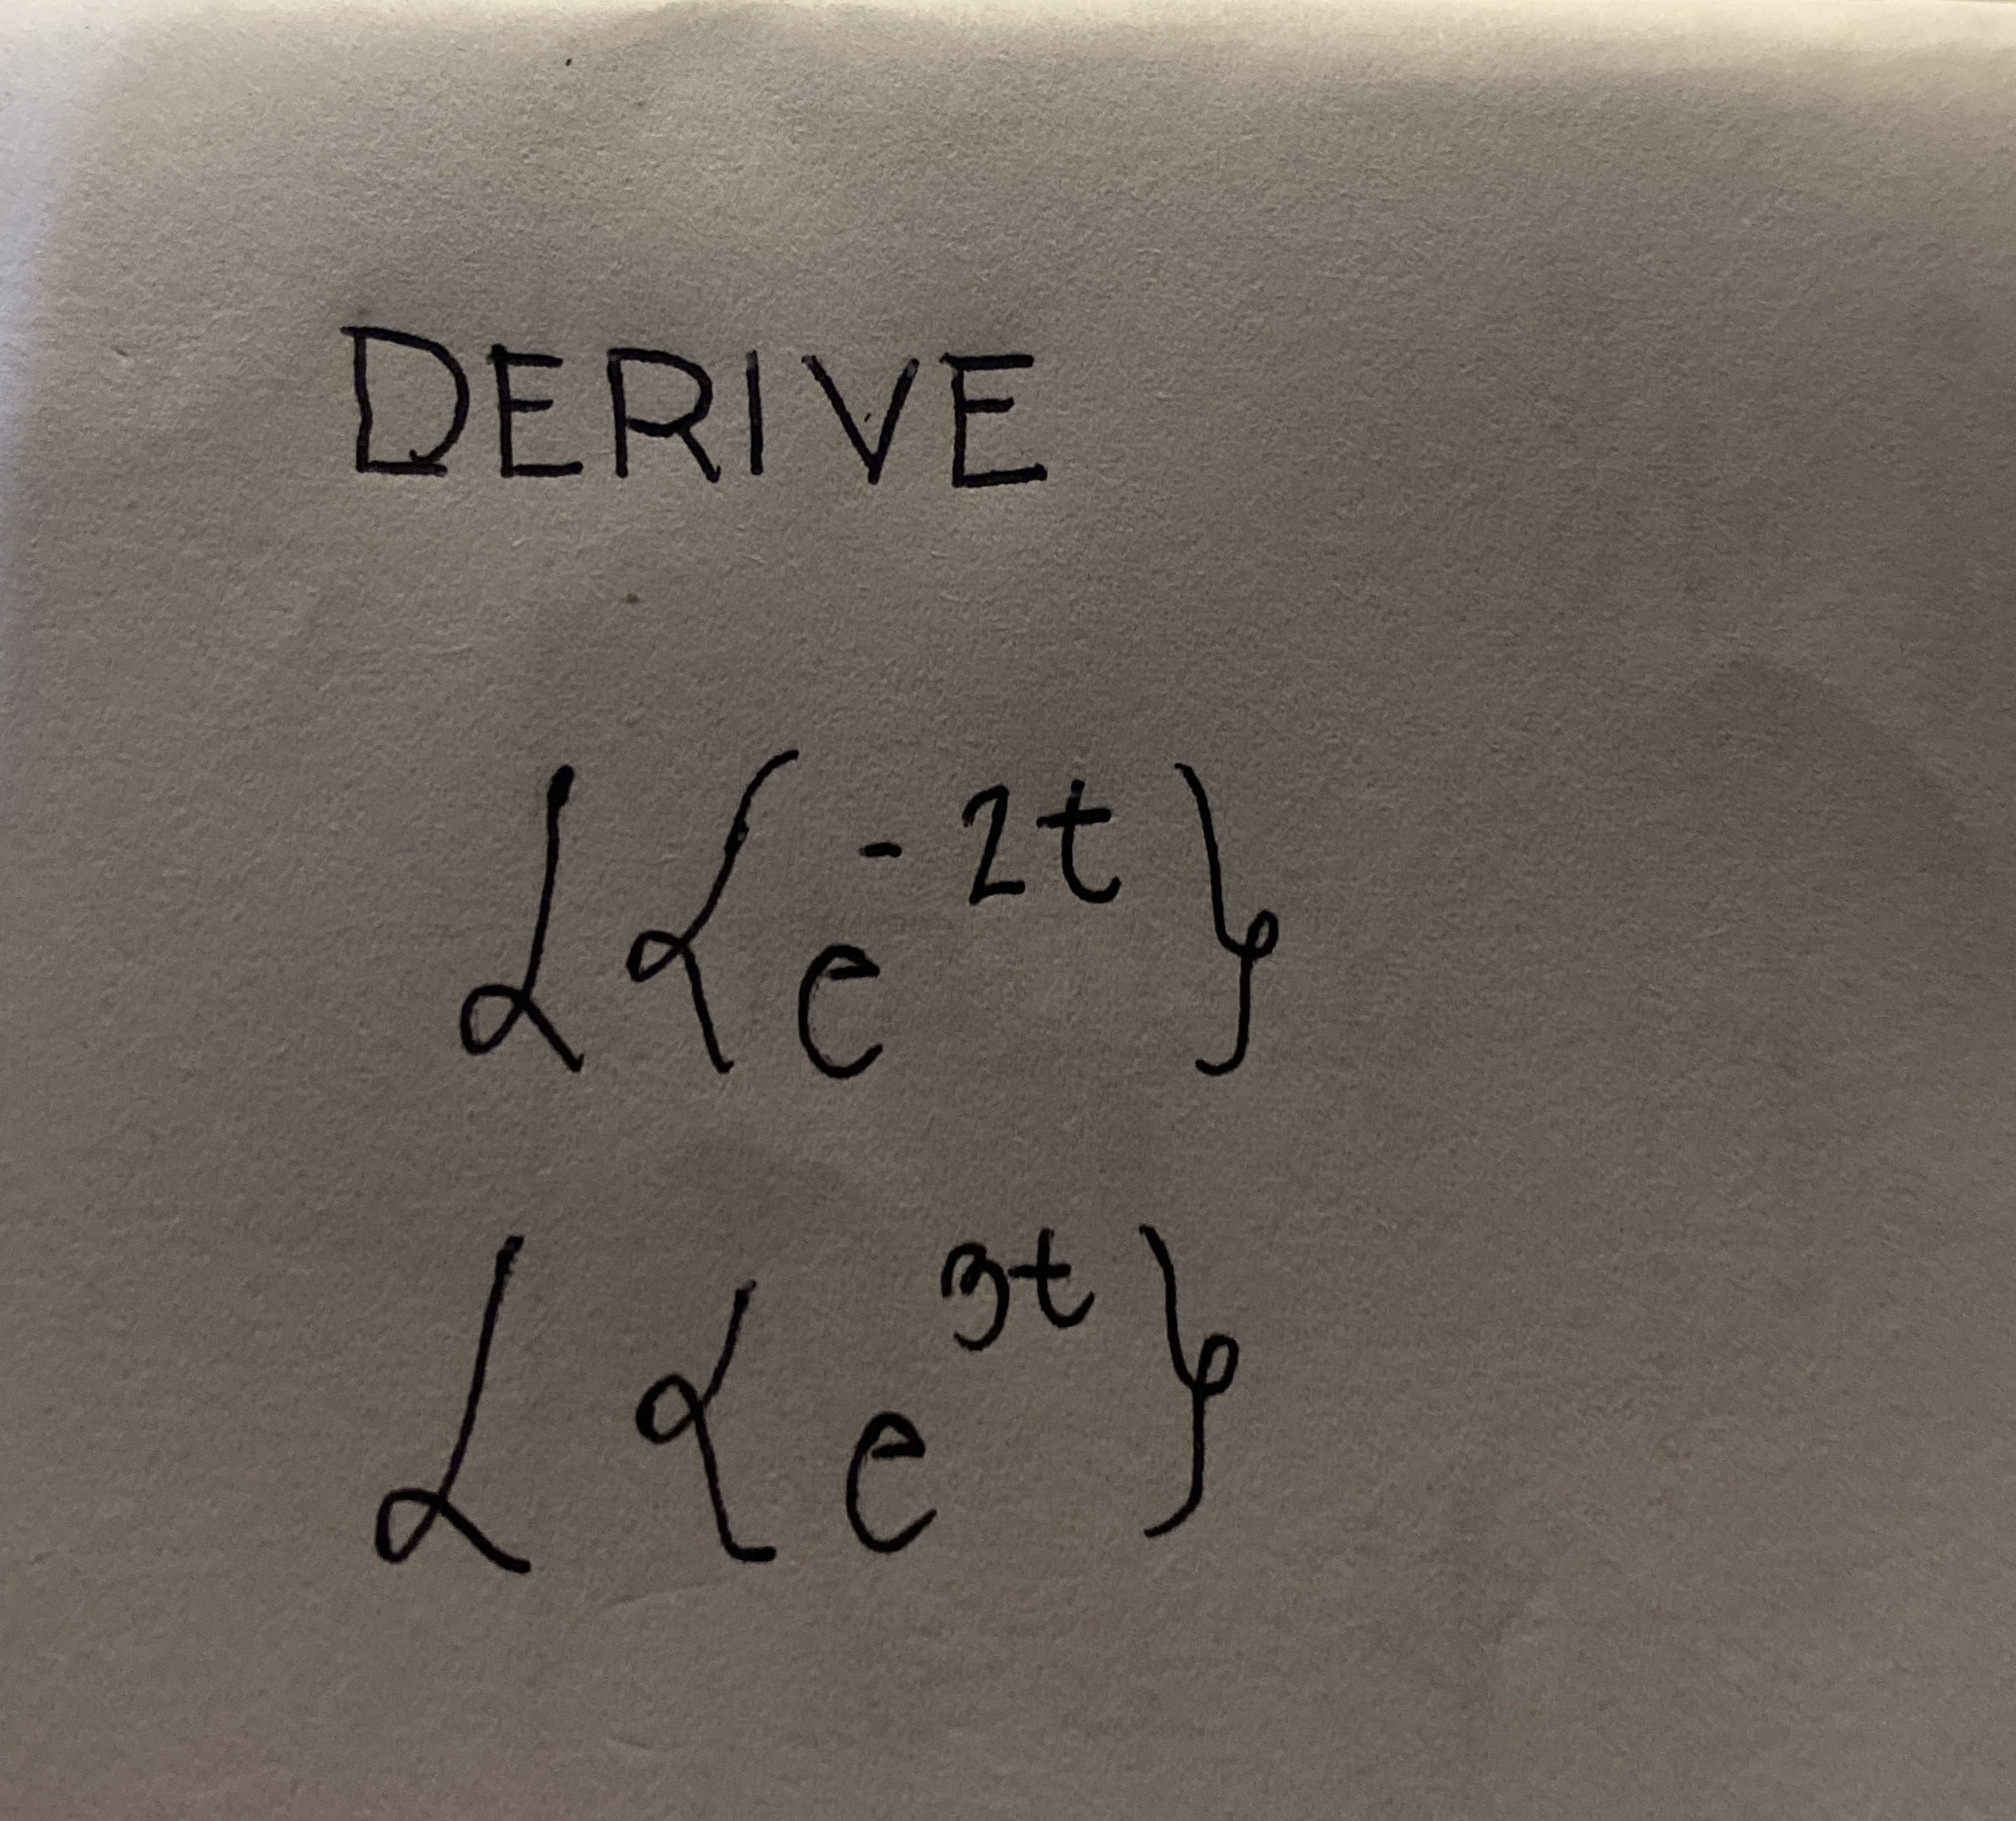 DERIVE
ℒ{e^{-2t}}
ℒ{e^{3t}}